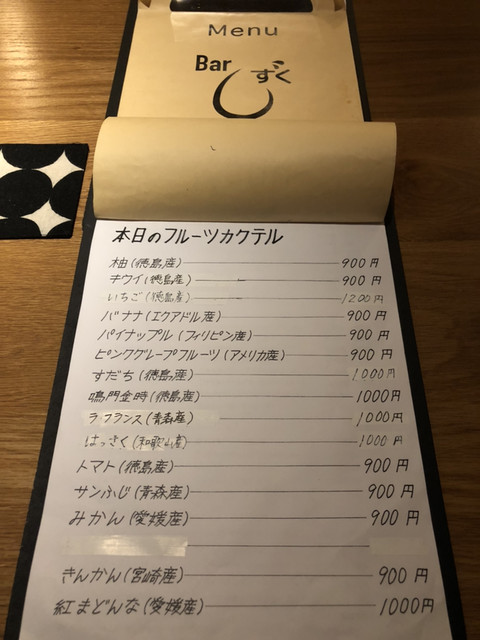 Menu
Bar しずく
本日のフルーツカクテル
柚(徳島産) 900円
キウイ(徳島産) 900円
いちご(徳島産) 1200円
バナナ(エクアドル産) 900円
パイナップル(フィリピン産) 900円
ピンクグレープフルーツ(アメリカ産) 900円
すだち(徳島産) 1000円
鳴門金時(徳島産) 1000円
ラ・フランス(青森産) 1000円
はっさく(和歌山産) 1000円
トマト(徳島産) 900円
サンふじ(青森産) 900円
みかん(愛媛産) 900円
きんかん(宮崎産) 900円
紅まどんな(愛媛産) 1000円